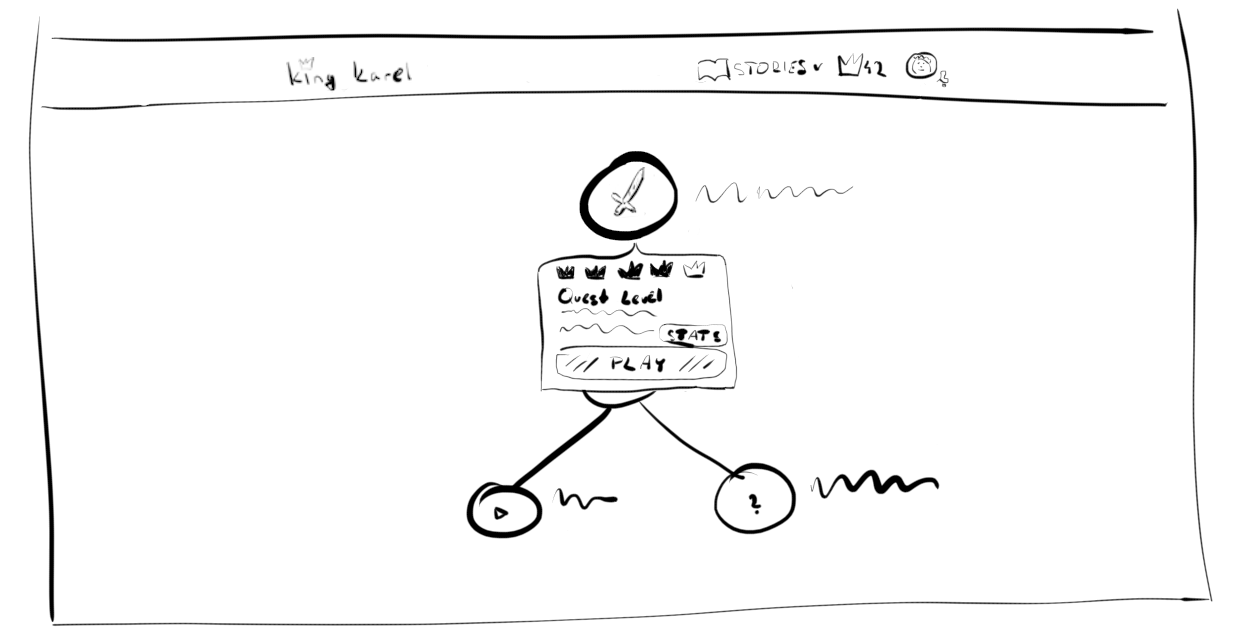 King Karel
STORIES
42
Quest Level
STATS
PLAY
?